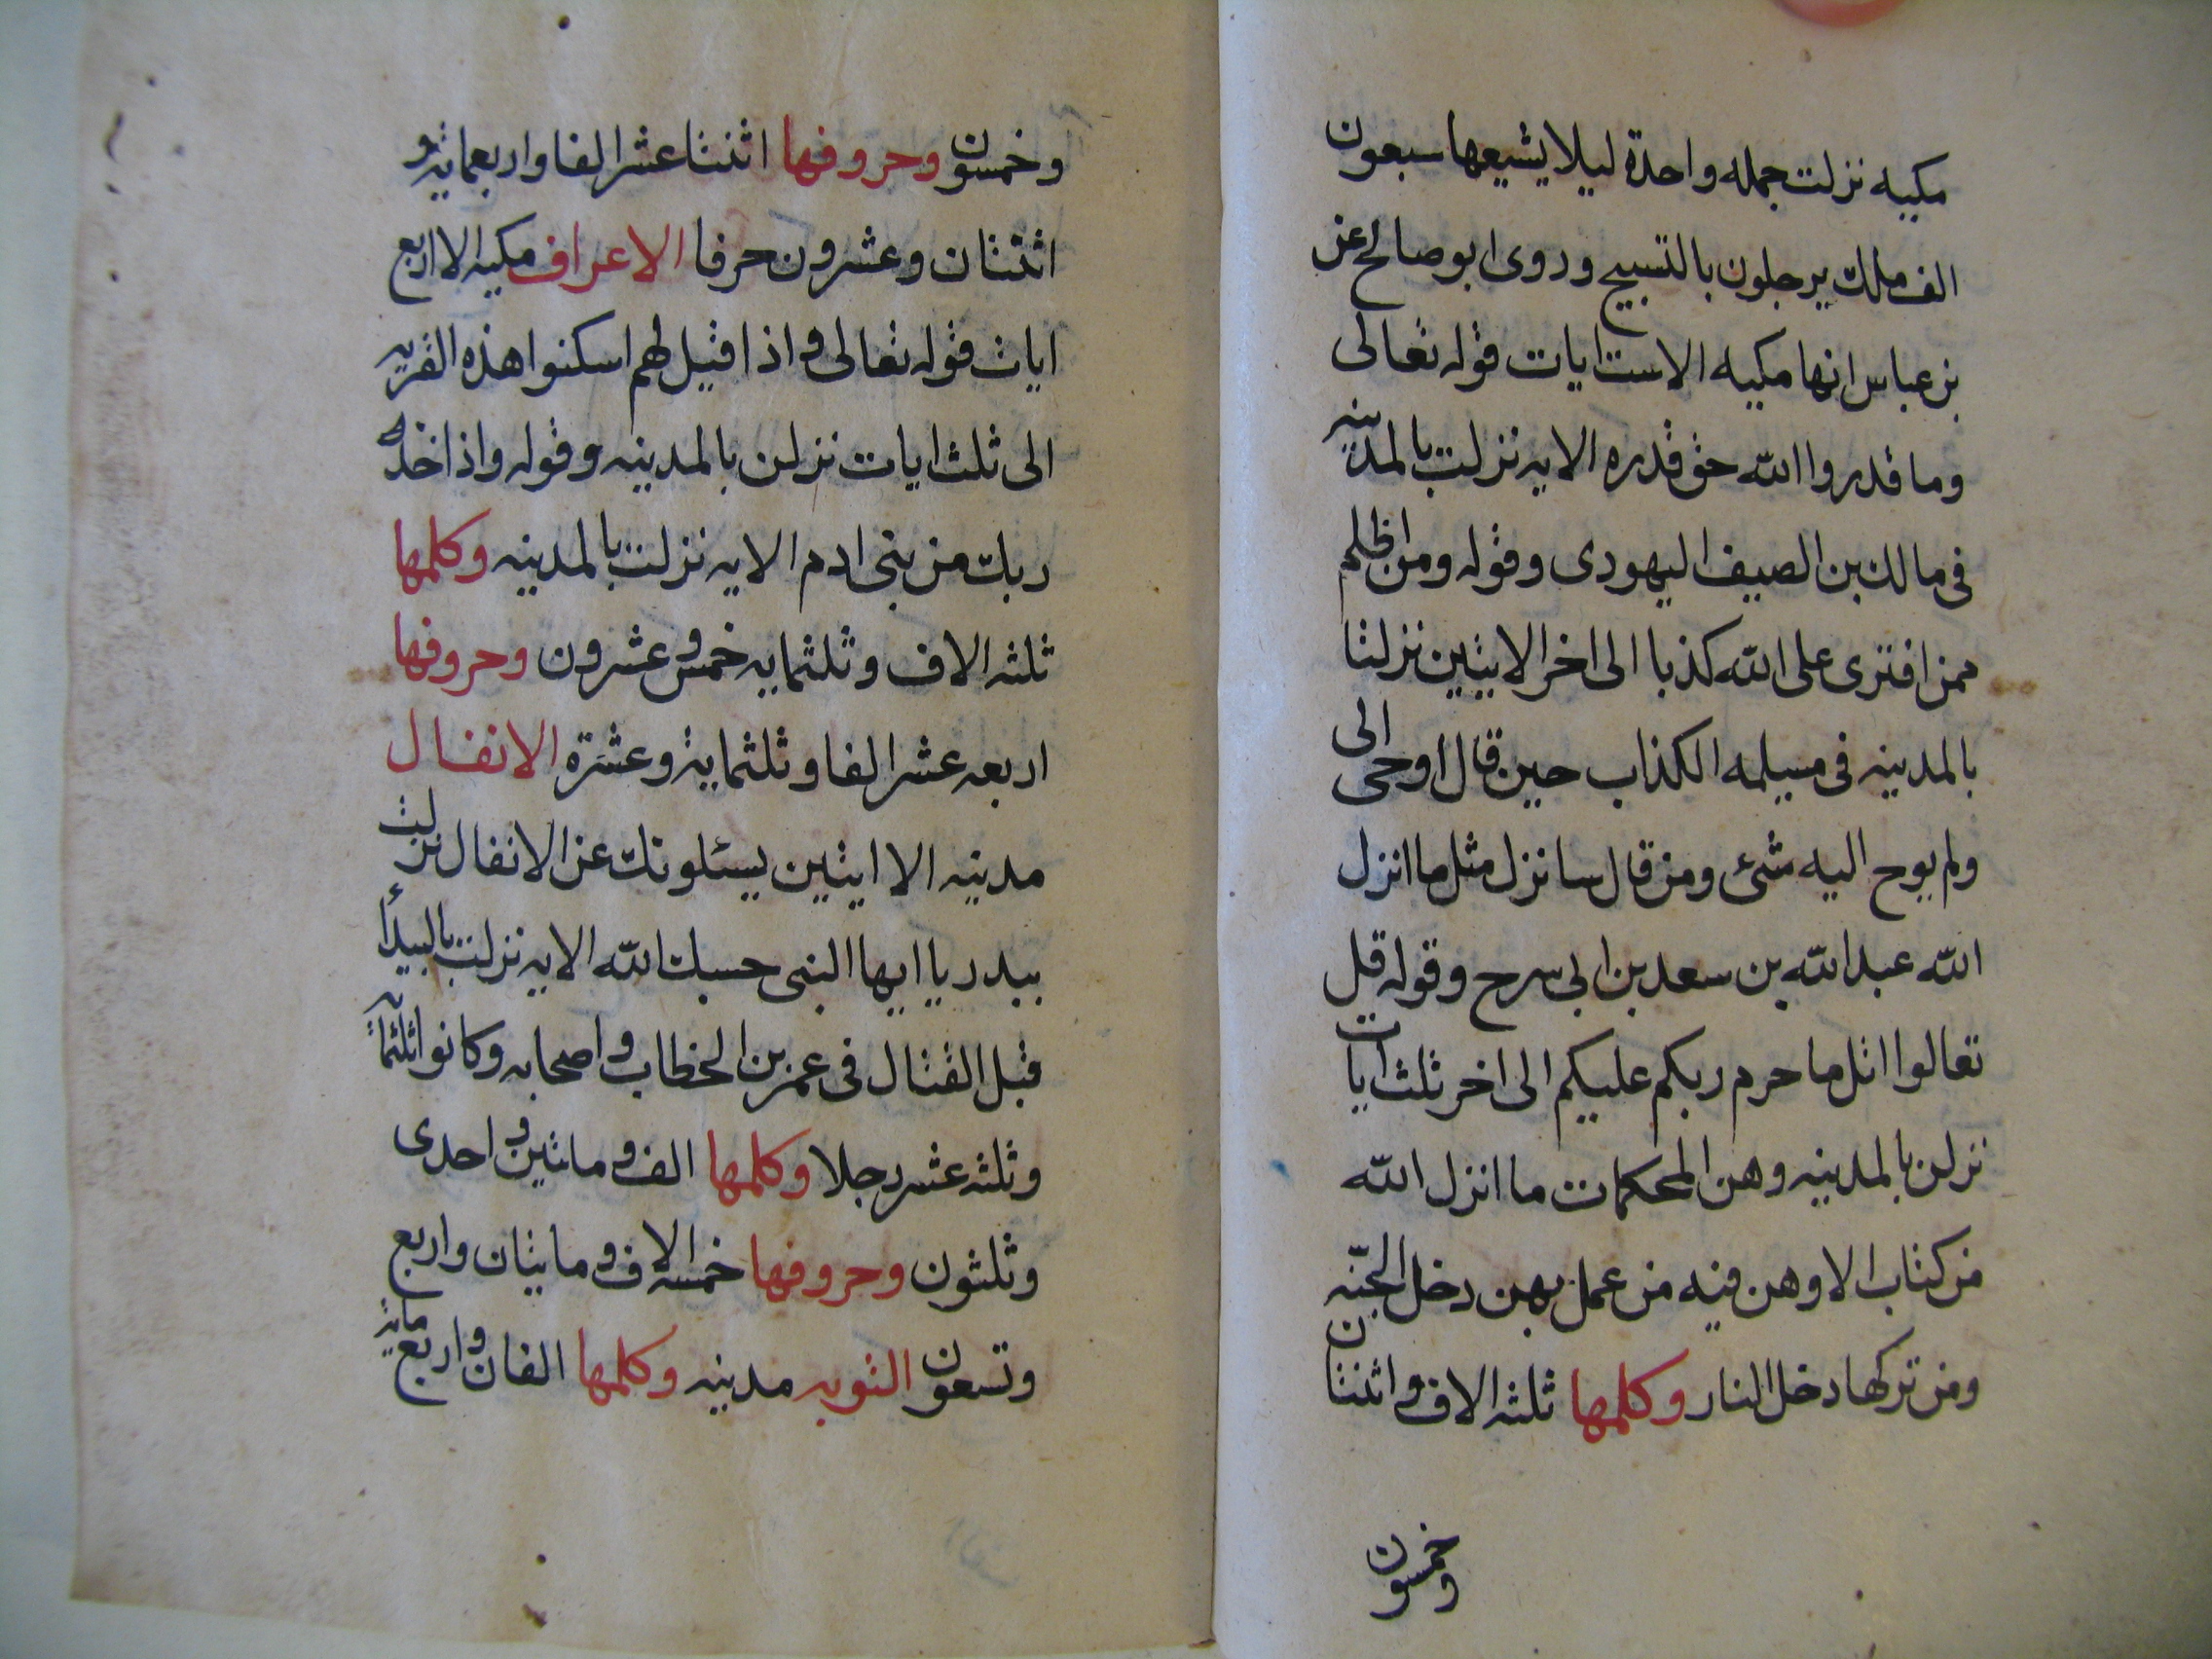 مكيه نزلت جمله واحدة ليلا يشيعها سبعون
الف ملك يرجلون بالتسبيح وروى ابو صالح عن
بن عباس انها مكيه الا ست ايات قوله تعالى
وما قدروا الله حق قدره الايه نزلت بالمدينه
فى مالك بن الصيف اليهودى وقوله ومن اظلم
ممن افترى على الله كذبا الى اخر الايتين نزلتا
بالمدينه فى مسيلمه الكذاب حين قال اوحى الى
ولم يوح اليه شىء ومن قال سانزل مثل ما انزل
الله عبد الله بن سعد بن ابى سرح وقوله قل
تعالوا اتل ما حرم ربكم عليكم الى اخر ثلث ايات
نزلن بالمدينه وهن المحكمات ما انزل الله
من كتاب الا وهن فيه من عمل بهن دخل الجنّه
ومن تركها دخل النار وكلمها ثلثه الاف و اثنتان
وخمسون
وخمسون وحروفها اثنتا عشر الفا واربعمايه و
اثنتان وعشرون حرفا الاعراف مكيه الا اربع
ايات قوله تعالى و اذا قيل لهم اسكنوا هذه القريه
الى ثلث ايات نزلن بالمدينه وقوله واذ اخذ
ربك من بنى ادم الايه نزلت بالمدينه وكلمها
ثلثه الاف وثلثمايه خمس و عشرون وحروفها
اربعه عشر الفا وثلثمايه وعشرة الانفال
مدينه الا ايتين يسئلونك عن الانفال نزلت
ببدر يا ايها النبى حسبك الله الايه نزلت بالبيدأ
قبل القتال فى عمر بن الخطاب و اصحابه وكانوا ثلثمايه
وثلثه عشر رجلا وكلمها الف و ماتين و احدى
وثلثون وحروفها خمسه الاف و مايتان واربع
وتسعون التوبه مدينه وكلمها الفان و اربع مايه